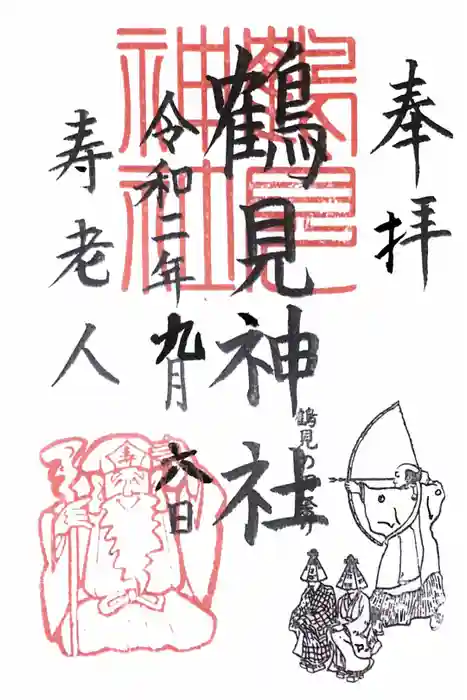 奉拝
鶴見神社
鶴見の田祭り
令和二年九月六日
寿老人
鶴見神社
寿